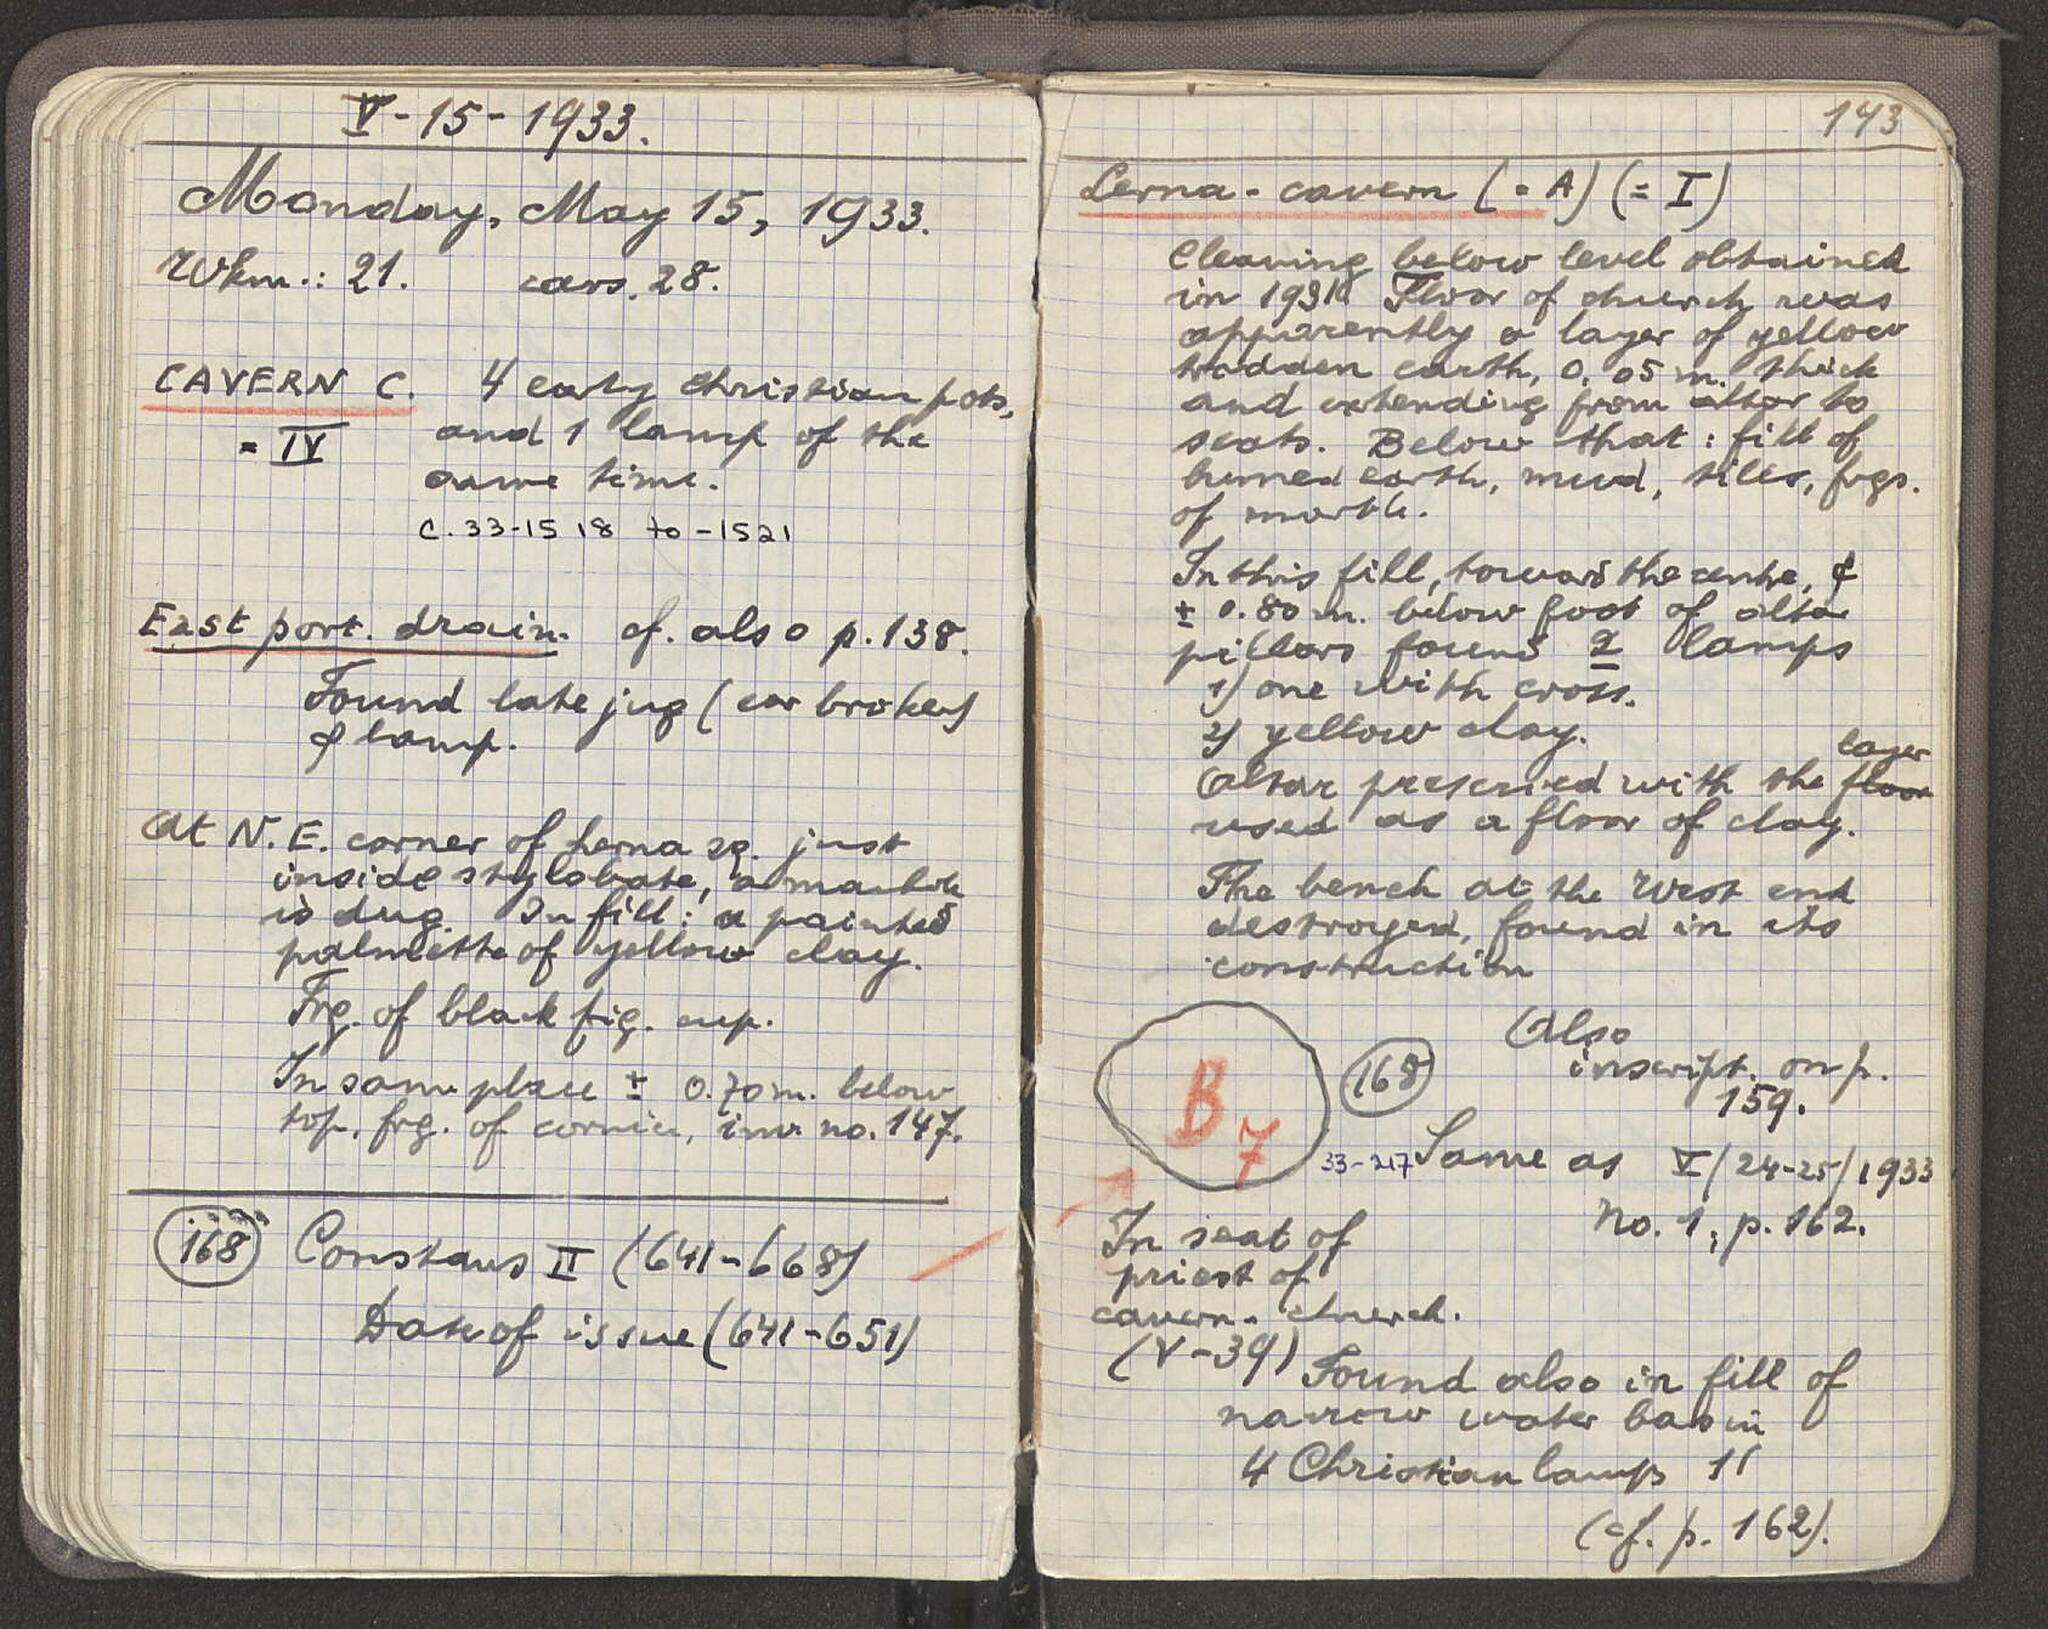 V-15-1933.
Monday, May 15, 1933.
Wkm.: 21. cars. 28.
CAVERN C. 4 early Christian pots,
= IV and 1 lamp of the
same time.
C. 33-1518 to -1521
East port. drain. cf. also p. 138.
Found late jug (ear broken)
& lamp.
At N.E. corner of Lerna sq. just
inside stylobate, a manhole
is dug. In fill: a painted
palmette of yellow clay.
Frg. of black fig. cup.
In same place ± 0.70 m. below
top, frg. of cornice, inv. no. 147.
168 Constans II (641-668)
Date of issue (641-651)
143
Lerna-cavern (= A) (= I)
Cleaning below level obtained
in 1931. Floor of church was
apparently a layer of yellow
trodden earth, 0.05 m. thick
and extending from altar to
seats. Below that: fill of
burned earth, mud, tiles, frgs.
of marble.
In this fill, toward the centre, &
± 0.80 m. below foot of altar
pillars found 2 lamps
1) one with cross.
2) yellow clay.
layer
Altar preserved with the floor
used as a floor of clay.
The bench at the West end
destroyed, found in its
construction
Also
inscript. on p.
159.
B7 168
33-217 Same as V/24-25/1933
No. 1, p. 162.
In seat of
priest of
cavern-church.
(V-39)
Found also in fill of
narrow water basin
4 Christian lamps
(cf. p. 162).